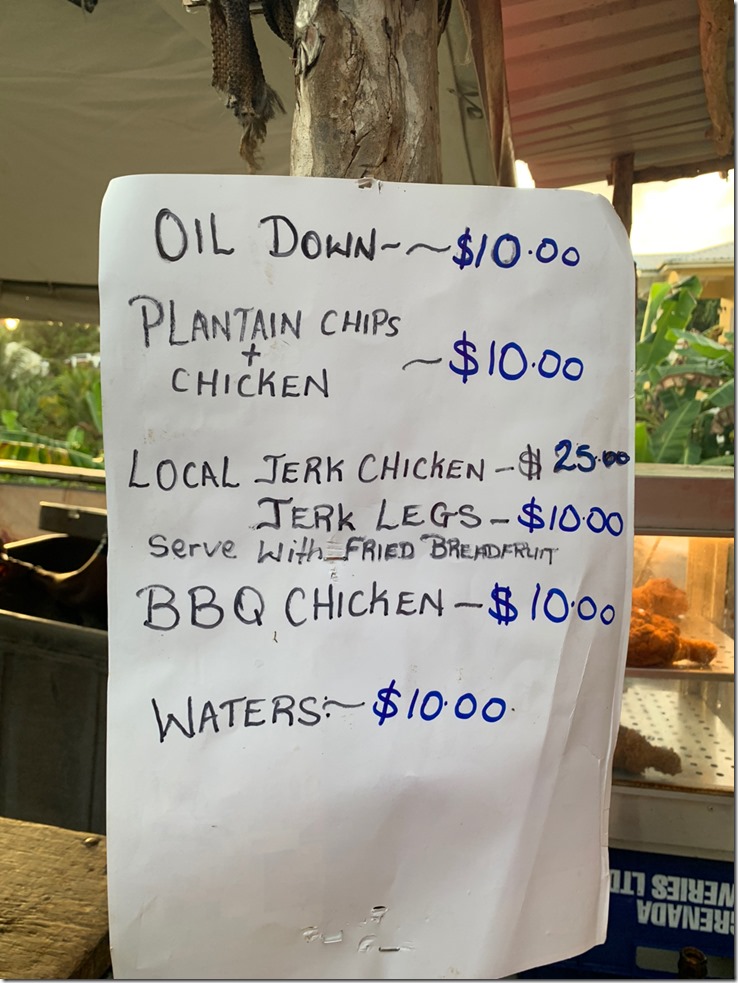 OIL DOWN~~$10.00
PLANTAIN CHIPS
+
CHICKEN
~$10.00
LOCAL JERK CHICKEN-$25.00
JERK LEGS-$10.00
Serve With FRIED BREADFRUIT
BBQ CHICKEN-$10.00
WATERS:~$10.00
GRENADA
BREWERIES LTD